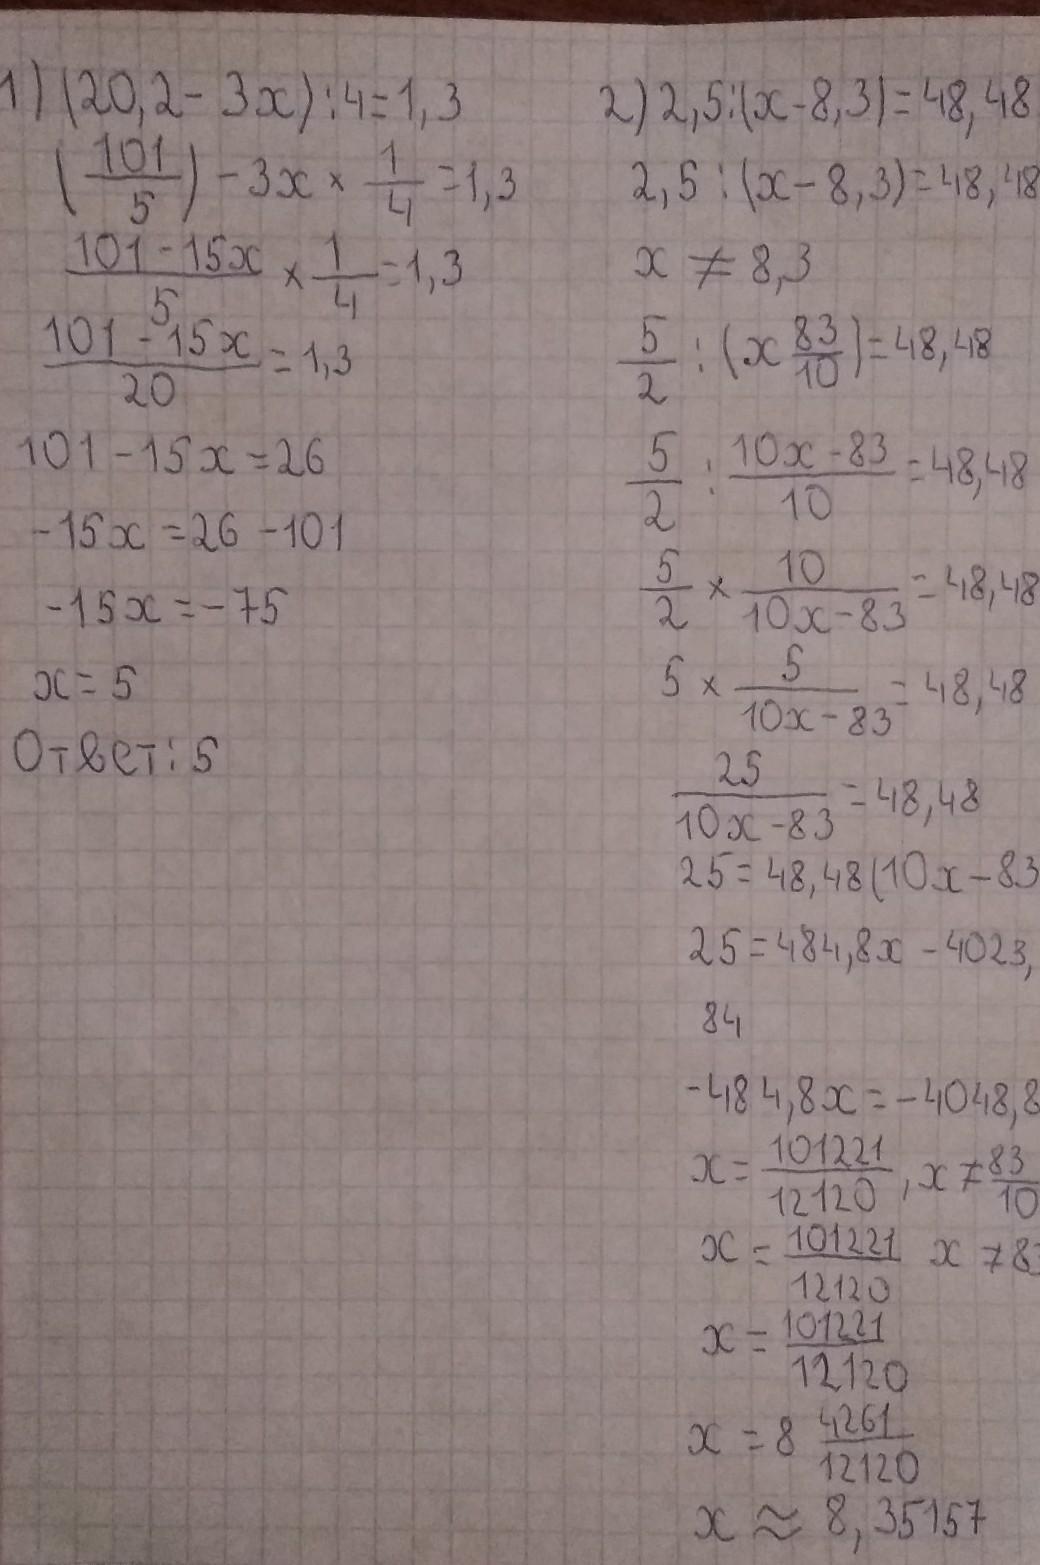 1) (20,2 - 3x) : 4 = 1,3
(101/5) - 3x × 1/4 = 1,3
(101 - 15x)/5 × 1/4 = 1,3
(101 - 15x)/20 = 1,3
101 - 15x = 26
-15x = 26 - 101
-15x = -75
x = 5
Ответ: 5
2) 2,5:(x - 8,3) = 48,48
2,5 : (x - 8,3) = 48,48
x ≠ 8,3
5/2 : (x 83/10) = 48,48
5/2 : (10x - 83)/10 = 48,48
5/2 × 10/(10x - 83) = 48,48
5 × 5/(10x - 83) = 48,48
25/(10x - 83) = 48,48
25 = 48,48(10x - 83
25 = 484,8x - 4023,
84
-484,8x = -4048,8
x = 101221/12120 , x ≠ 83/10
x = 101221/12120 x ≠ 83
x = 101221/12120
x = 8 4261/12120
x ≈ 8,35157